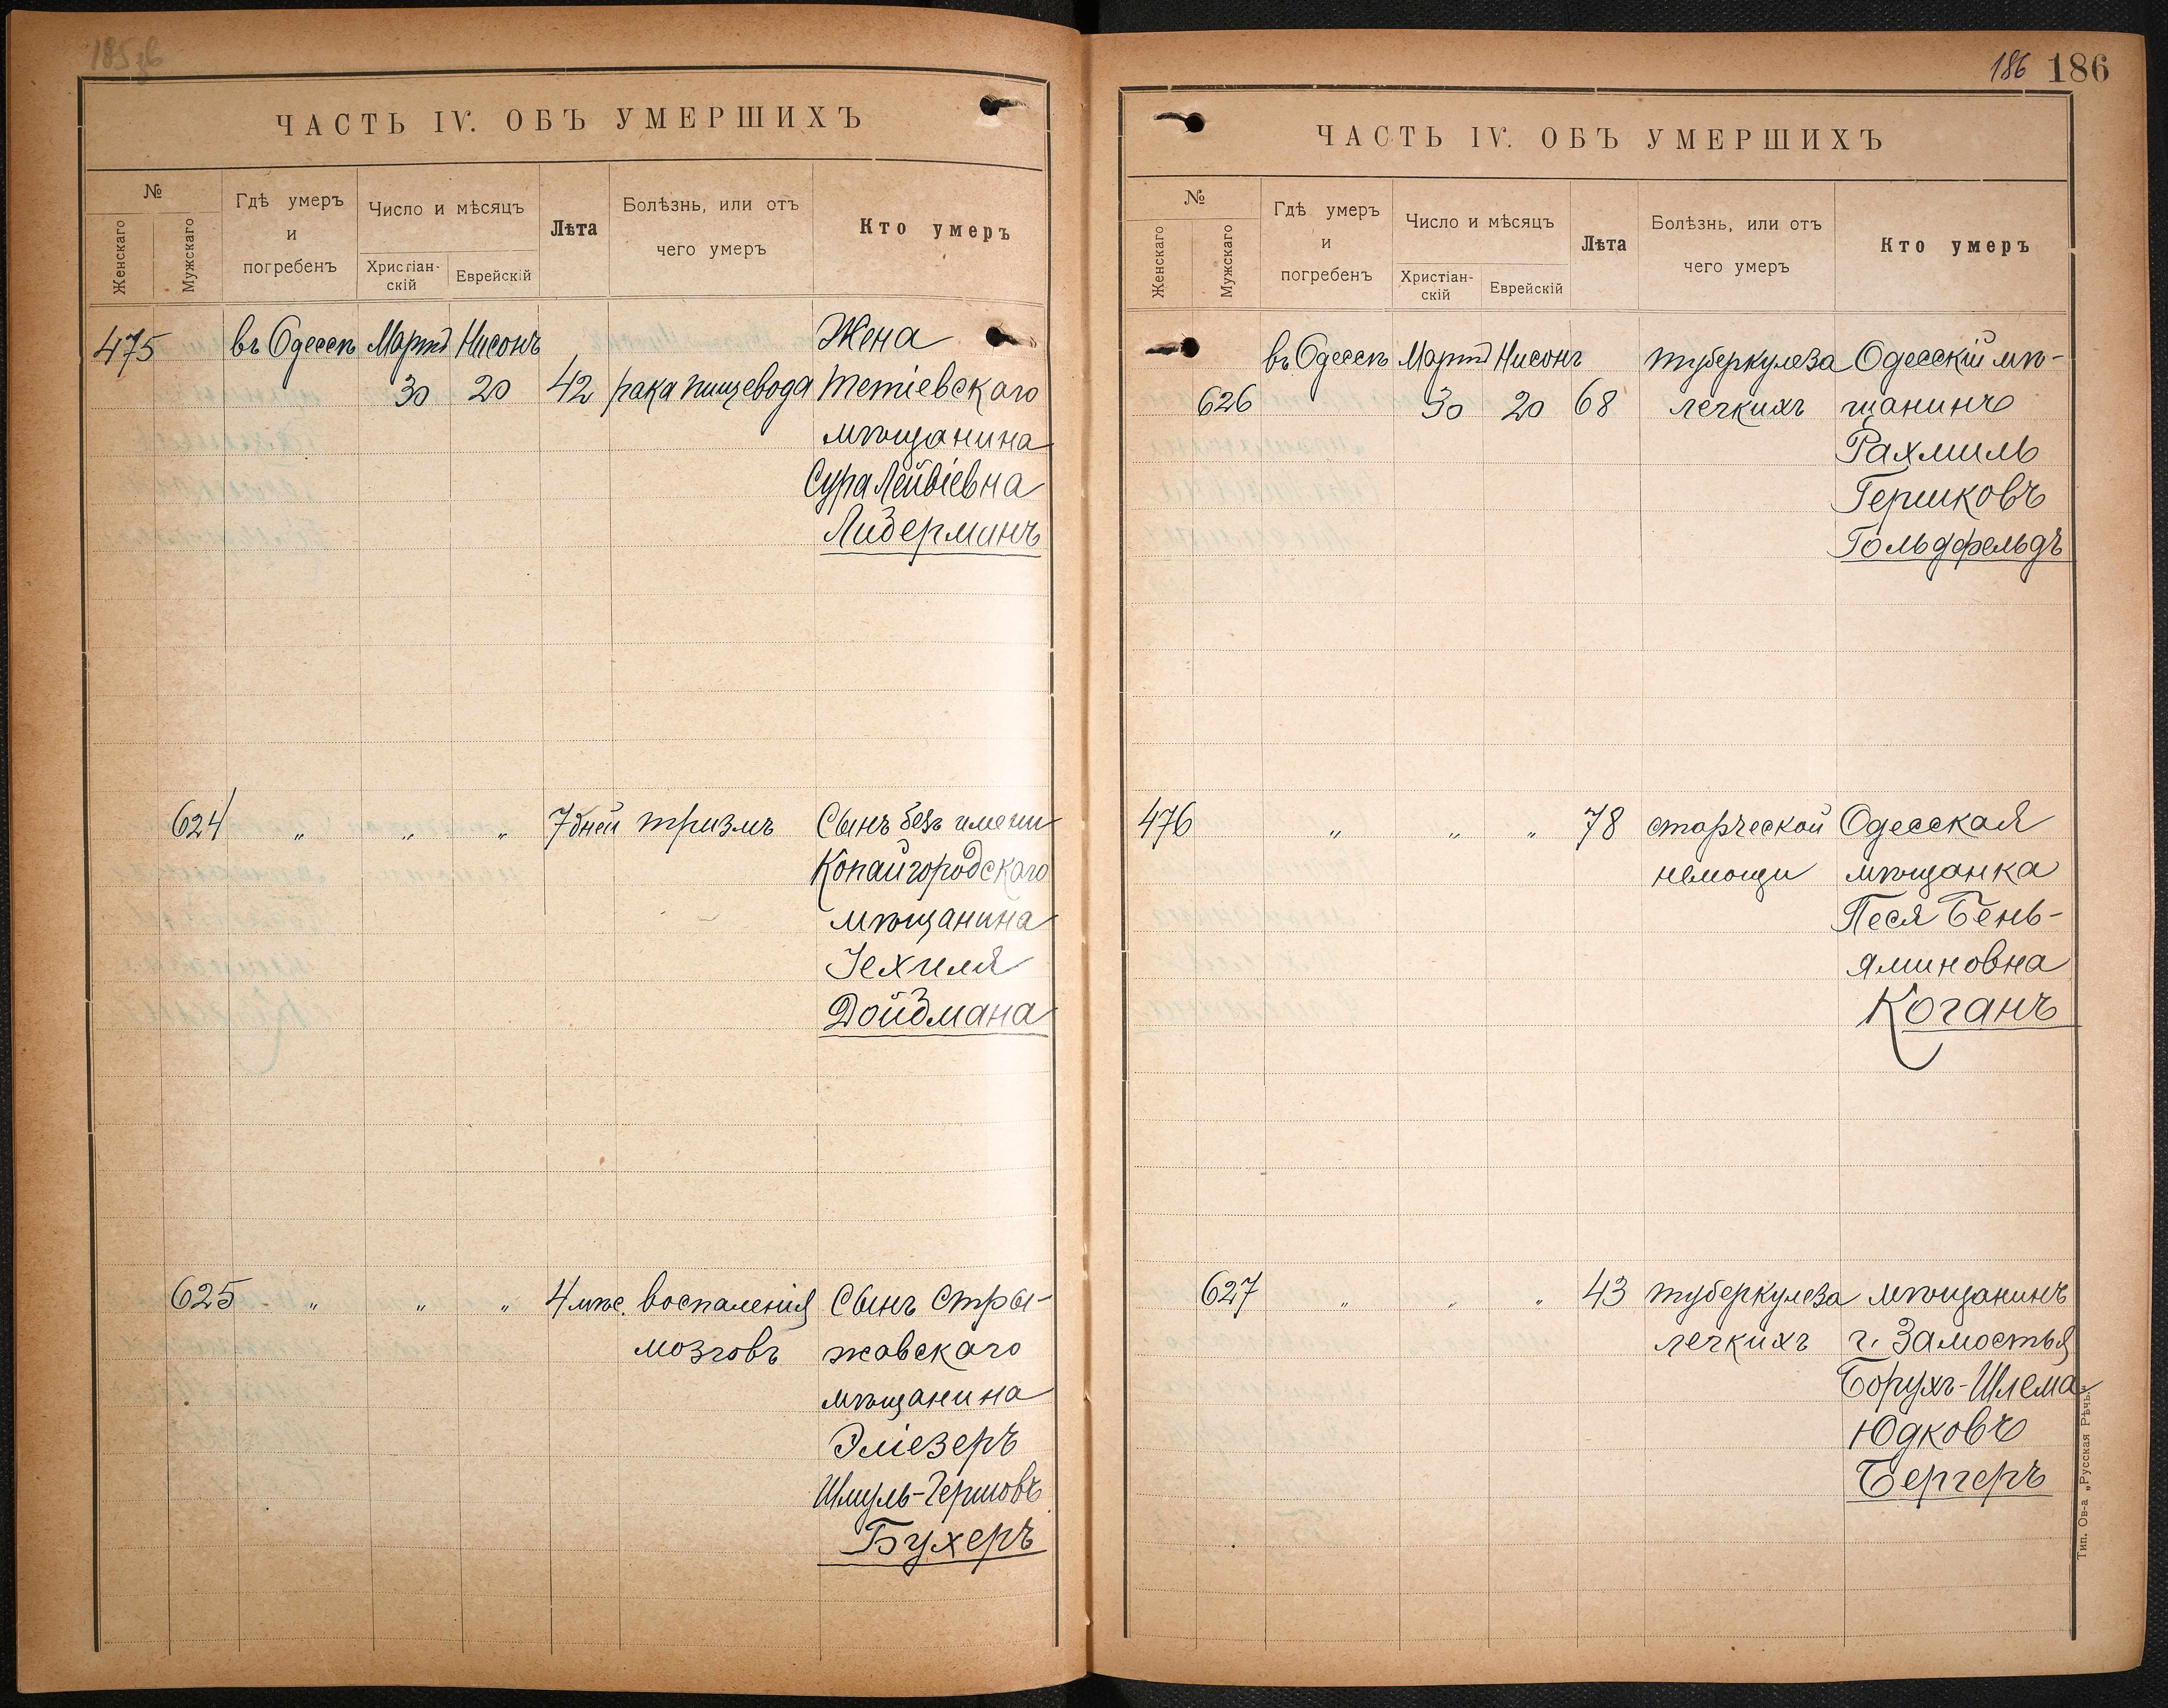 185 об
ЧАСТЬ IV. ОБЪ УМЕРШИХЪ
№
Женскаго
Мужскаго
Гдѣ умеръ
и
погребенъ
Число и мѣсяцъ
Христіан-
скій
Еврейскій
Лѣта
Болѣзнь, или отъ
чего умеръ
Кто умеръ
475 въ Одессѣ Мартъ Нисонъ Жена
30 20 42 рака пищевода Тетіевскаго
мѣщанина
Сура Лейвіевна
Лидерманъ
624 „ „ „ 7 дней тризмъ Сынъ безъ имени
Копайгородскаго
мѣщанина
Іехиля
Дойдмана
625 „ „ „ 4 мѣс. воспаленія Сынъ Стры-
мозговъ жавскаго
мѣщанина
Эліезеръ
Шмуль-Гершовъ
Бухеръ
186 186
ЧАСТЬ IV. ОБЪ УМЕРШИХЪ
№
Женскаго
Мужскаго
Гдѣ умеръ
и
погребенъ
Число и мѣсяцъ
Христіан-
скій
Еврейскій
Лѣта
Болѣзнь, или отъ
чего умеръ
Кто умеръ
въ Одессѣ Мартъ Нисонъ туберкулеза Одесскій мѣ-
626 30 20 68 легкихъ щанинъ
Рахмиль
Гершковъ
Гольдфельдъ
476 „ „ „ 78 старческой Одесская
немощи мѣщанка
Песя Бень-
яминовна
Коганъ
627 „ „ „ 43 туберкулеза мѣщанинъ
легкихъ г. Замостья
Борухъ-Шлема
Юдковъ
Бергеръ
Тип. Ов-а „Русская Рѣчь“